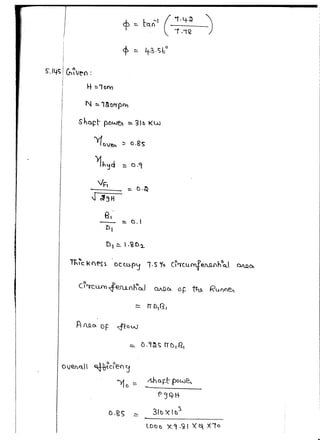 ϕ = tan⁻¹ (7.42 / 7.78)
ϕ = 43.56°
5.145 Given :
H = 70m
N = 780rpm
Shaft power = 310 KW
ηover = 0.85
ηhyd = 0.9
VF₁ / √2gH = 0.2
B₁ / D₁ = 0.1
D₁ = 1.8D₂
Thickness occupy 7.5 % circumferenhal area
circumferenhal area of the Runner
= πD₁B₁
Area of flow
= 0.925 πD₁B₁
overall efficieny
ηo = shaft power / ρgQH
0.85 = 310 x 10³ / 1000 x 9.81 x Q x 70